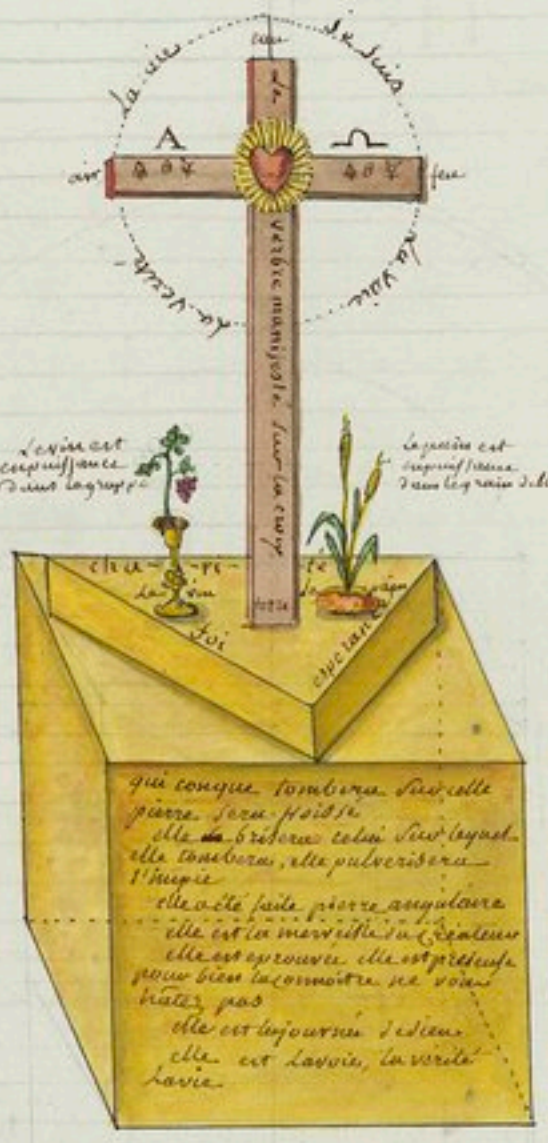 eau
la vie
Je suis
A
air
feu
la verité
la voie
Le verbe manifesté sur la croix
Le vin est
en puissance
dans la grappe
Le pain est
en puissance
dans le grain de
cha-ri-té
Le vin
Le pain
terre
foi
esperance
qui conque tombera sur cette
pierre sera froissé
elle brisera celui sur lequel
elle tombera, elle pulverisera
l'impie
elle a été faite pierre angulaire
elle est la merveille du Créateur
elle est eprouvée elle est
pour bien la connoître ne vous
hâtez pas
elle est la journée de dieu
elle est la voie, la vérité
la vie